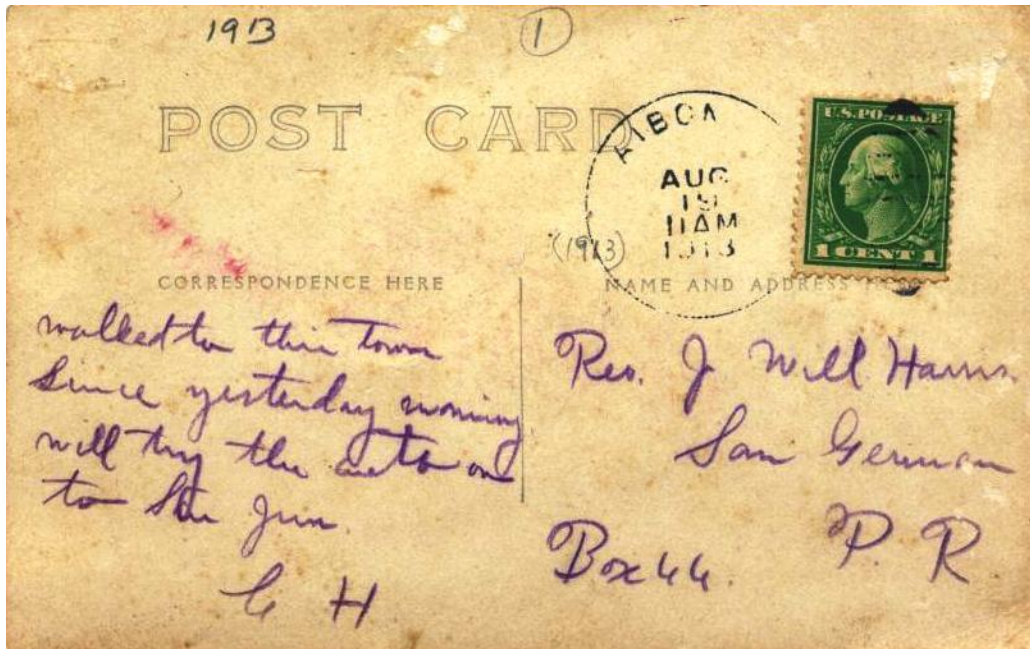 1913
1
POST CARD
AIBO
AUG
19
11AM
1913
(1913)
U.S.POSTAGE
1 CENT 1
CORRESPONDENCE HERE
NAME AND ADDRESS
walked to this town
since yesterday morning
will try the auto on
to San Juan.
H
Rev. J Will Harris
San German
P. R
Box 44.